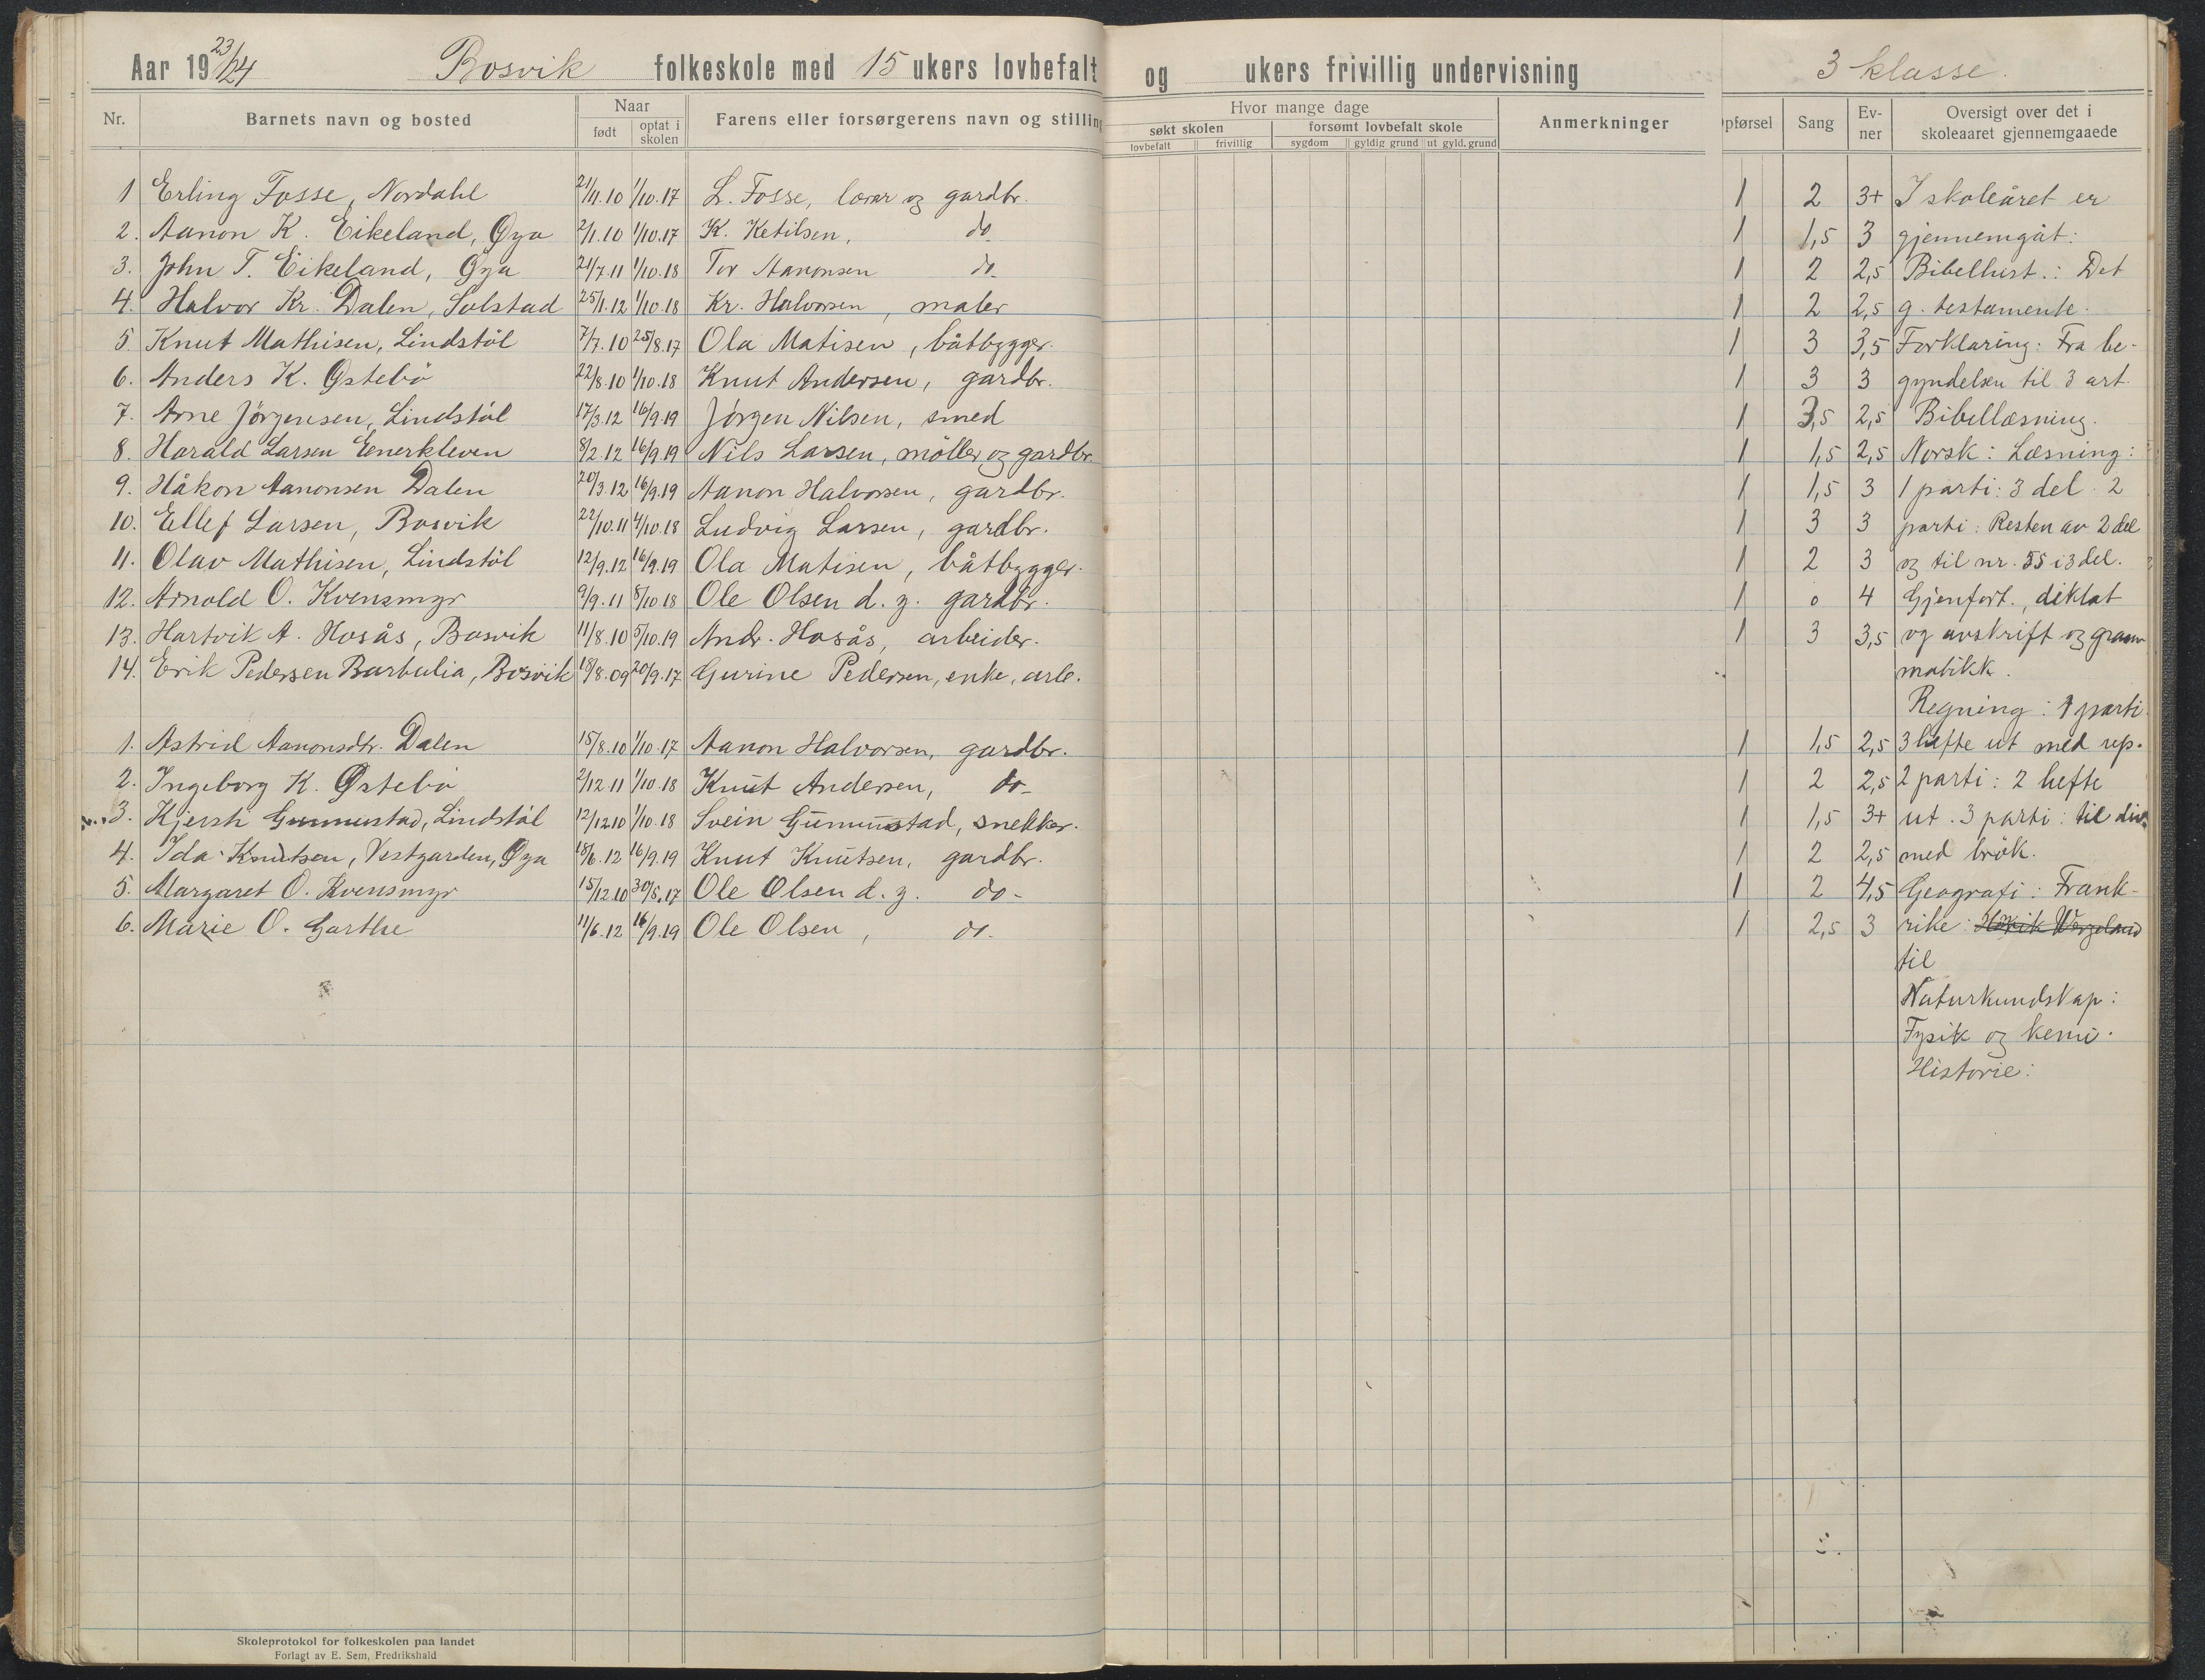 Aar 19 23/24 Bosvik folkeskole med 15 ukers lovbefalt og ukers frivillig undervisning 3 klasse.
Nr. Barnets navn og bosted Naar født optat i skolen Farens eller forsørgerens navn og stilling Hvor mange dage søkt skolen lovbefalt frivillig forsømt lovbefalt skole sygdom gyldig grund ut gyld. grund Anmerkninger pførsel Sang Ev-ner Oversigt over det i skoleaaret gjennemgaaede
1 Erling Fosse, Nordahl 21/11.10 1/10.17 L. Fosse, lærar og gardbr. 1 2 3+ I skoleåret er
2. Aanon K. Eikeland, Øya 2/1.10 1/10.17 K. Ketilsen, do 1 1,5 3 gjennemgåt:
3. John T. Eikeland, Øya 24/7.11 1/10.18 Tor Aanonsen do. 1 2 2,5 Bibelhist.: Det
4. Halvor Kr. Dalen, Solstad 25/1.12 1/10.18 Kr. Halvorsen, maler 1 2 2,5 g. testamente.
5. Knut Mathisen, Lindstöl 7/7.10 25/8.17 Ola Matisen, båtbygger. 1 3 3,5 Forklaring: Fra be-
6. Anders K. Østebö 22/8.10 1/10.18 Knut Andersen, gardbr. 1 3 3 gyndelsen til 3 art.
7. Arne Jörgensen, Lindstöl 17/3.12 16/9.19 Jörgen Nilsen, smed 1 3,5 2,5 Bibellæsning.
8. Harald Larsen Enerkleven 8/2.12 16/9.19 Nils Larsen, möller og gardbr. 1 1,5 2,5 Norsk: Læsning:
9. Håkon Aanonsen Dalen 20/3.12 16/9.19 Aanon Halvorsen, gardbr. 1 1,5 3 1 parti: 3 del. 2
10. Ellef Larsen, Bosvik 22/10.11 4/10.18 Ludvig Larsen, gardbr. 1 3 3 parti: Resten av 2 del
11. Olav Mathisen, Lindstöl 12/9.12 16/9.19 Ola Matisen, båtbygger. 1 2 3 og til nr. 55 i 3 del.
12. Arnold O. Kvensmyr 9/9.11 8/10.18 Ole Olsen d. y. gardbr. 1 0 4 Gjenfort., diktat
13. Hartvik A. Hosås, Bosvik 11/8.10 5/10.19 Andr. Hosås, arbeider. 1 3 3,5 og avskrift og gram-
14. Erik Pedersen Barbulia, Bosvik 18/8.09 20/9.17 Gurine Pedersen, enke, arb. matikk.
Regning: 1 parti.
1. Astrid Aanonsdtr. Dalen 15/8.10 1/10.17 Aanon Halvorsen, gardbr. 1 1,5 2,5 3 hefte ut med rep.
2. Ingeborg K. Østebö 2/12.11 1/10.18 Knut Andersen, do- 1 2 2,5 2 parti: 2 hefte
3. Kjersti Gunnustad, Lindstöl 12/12.10 1/10.18 Svein Gunnustad, snekker. 1 1,5 3+ ut. 3 parti: til div.
4. Ida Knutsen, Vestgarden, Øya 18/6.12 16/9.19 Knut Knutsen, gardbr. 1 2 2,5 med brök.
5. Margaret O. Kvensmyr 15/12.10 30/5.17 Ole Olsen d. y. do- 1 2 4,5 Geografi: Frank-
6. Marie O. Garthe 11/6.12 16/9.19 Ole Olsen, do. 1 2,5 3 rike: Wergeland
til
Naturkundskap:
Fysik og kemi.
Historie:
Skoleprotokol for folkeskolen paa landet
Forlagt av E. Sem, Fredrikshald